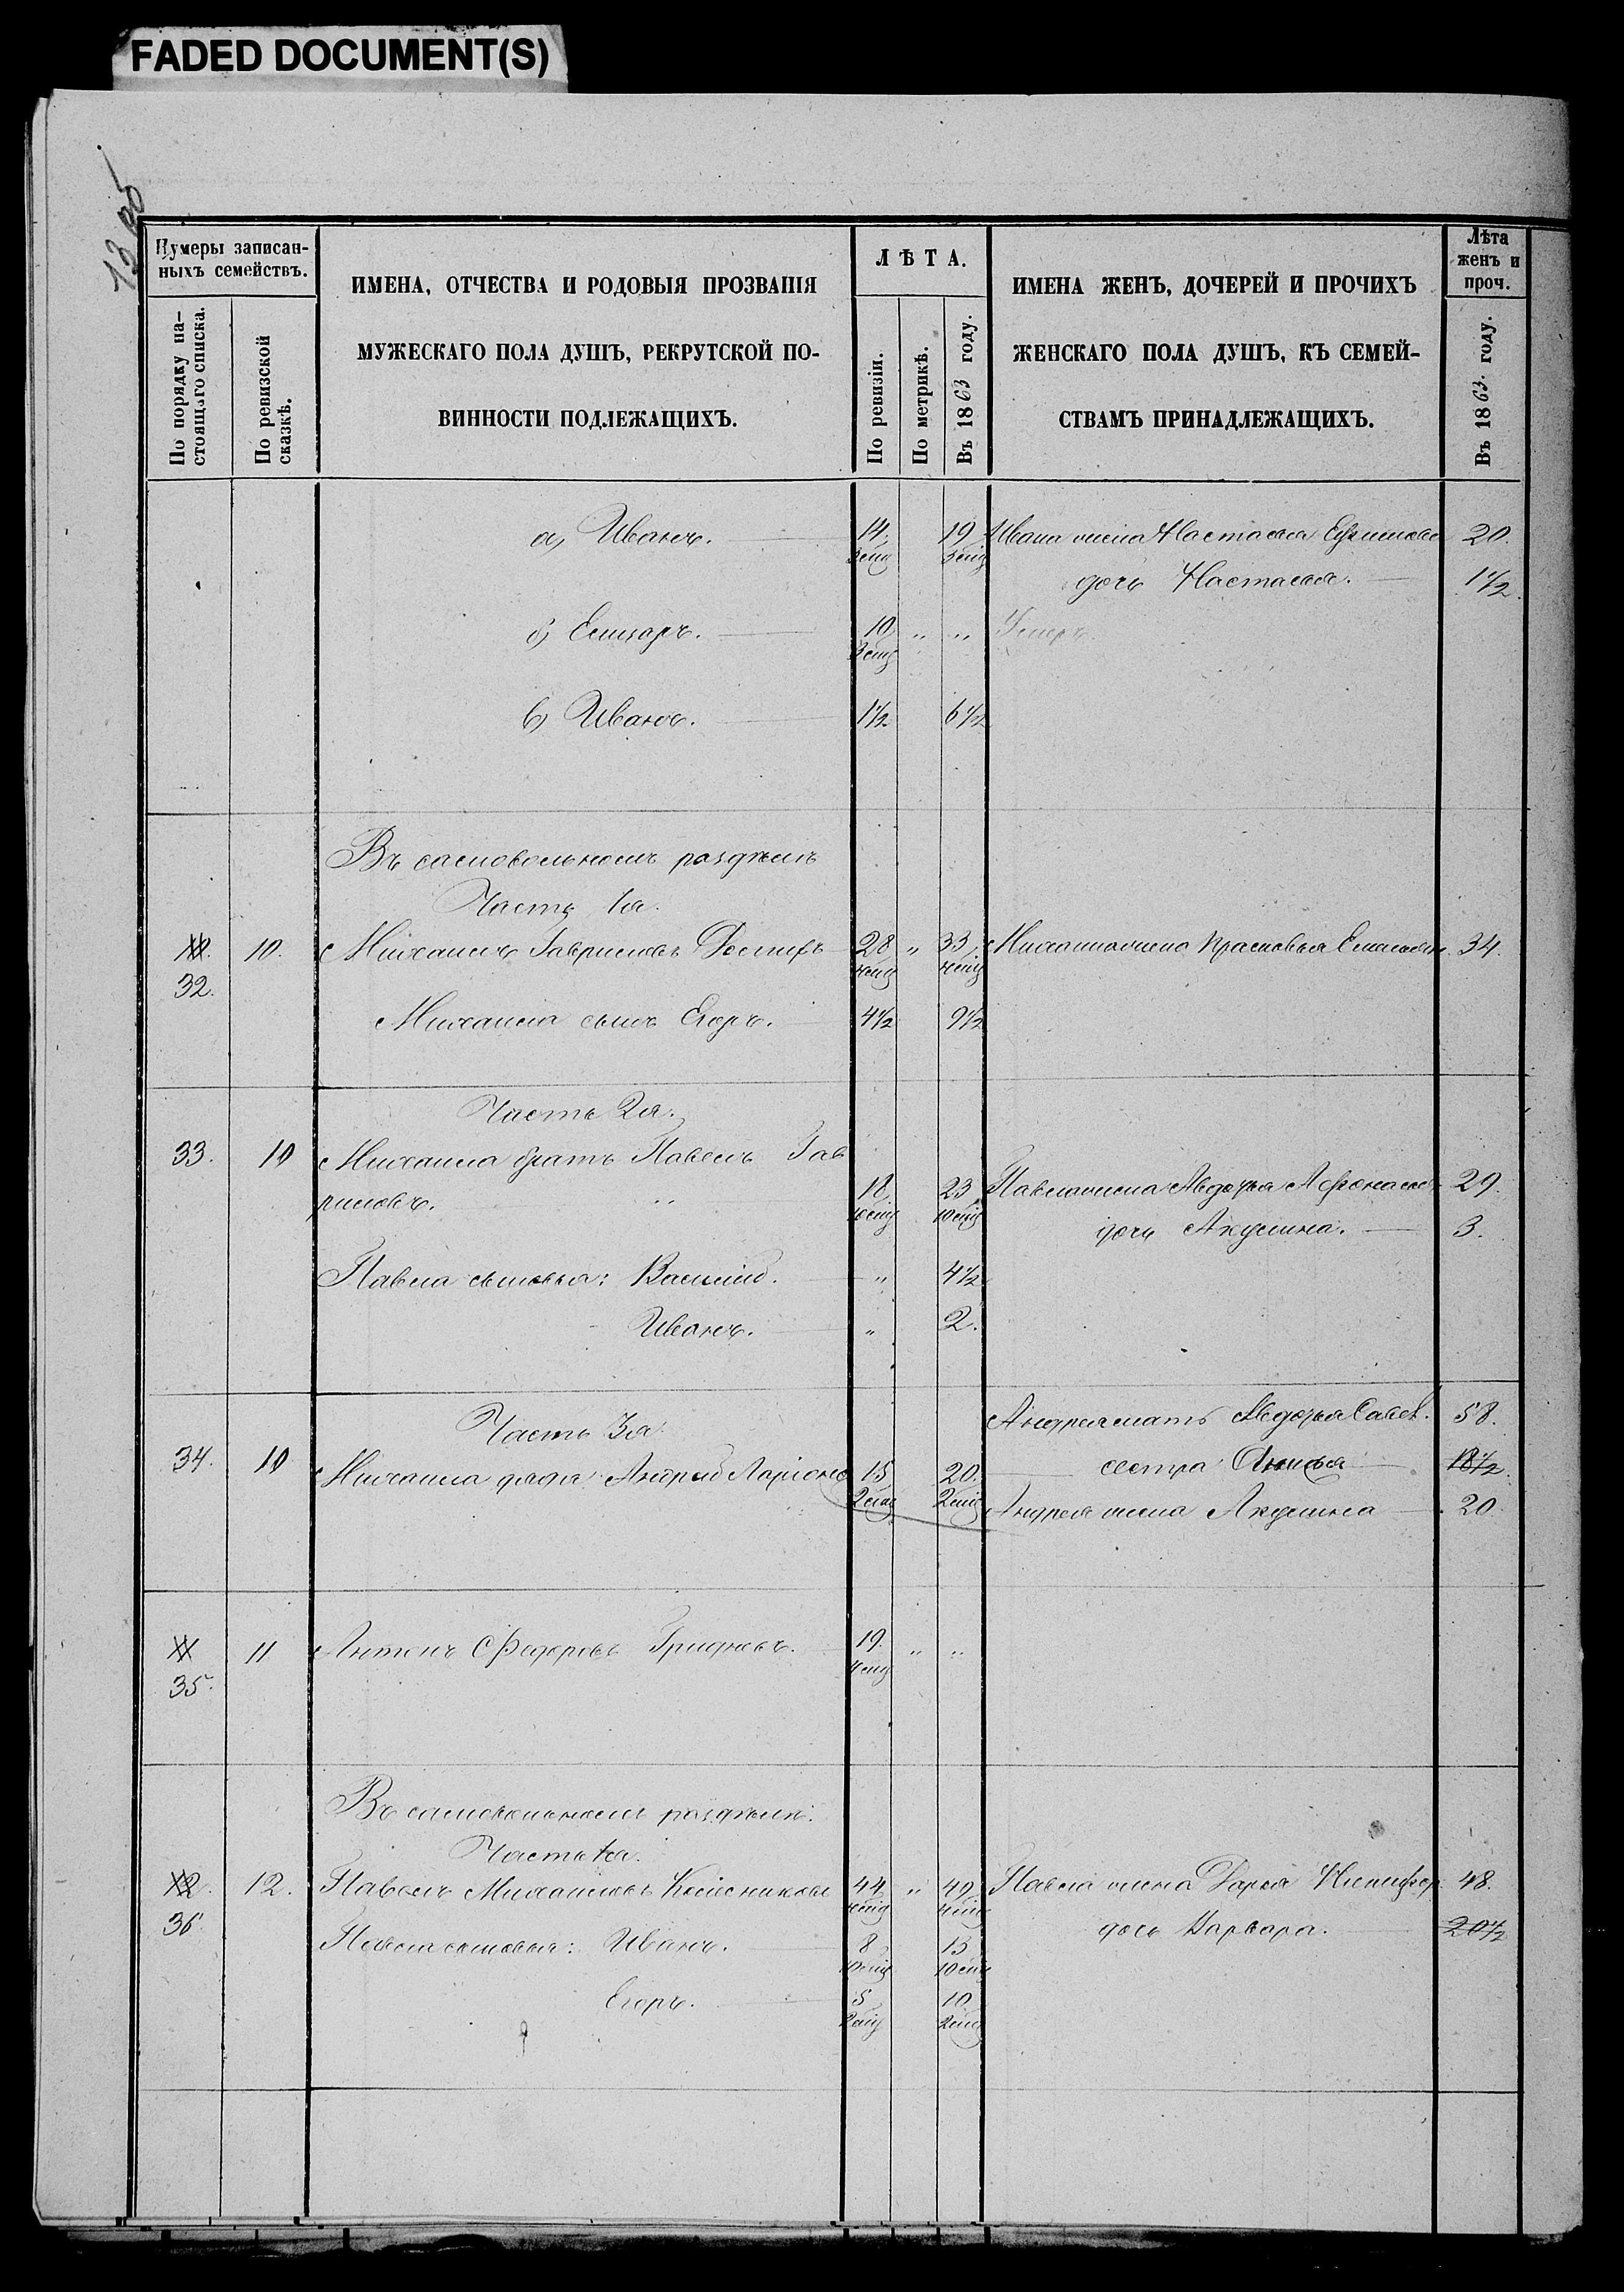 FADED DOCUMENT(S)
Нумеры записан-
ныхъ семействъ.
По порядку на-
стоящаго списка.
По ревизской
сказкѣ.
ИМЕНА, ОТЧЕСТВА И РОДОВЫЯ ПРОЗВАНІЯ
МУЖЕСКАГО ПОЛА ДУШЪ, РЕКРУТСКОЙ ПО-
ВИННОСТИ ПОДЛЕЖАЩИХЪ.
ЛѢТА.
По ревизіи.
По метрикѣ.
Въ 1863 году.
ИМЕНА ЖЕНЪ, ДОЧЕРЕЙ И ПРОЧИХЪ
ЖЕНСКАГО ПОЛА ДУШЪ, КЪ СЕМЕЙ-
СТВАМЪ ПРИНАДЛЕЖАЩИХЪ.
Лѣта
женъ и
проч.
Въ 1863. году.
а) Иванъ. 14. 19 Ивана жена Настасья Ефимова 20.
3 мц 3 мц
дочь Настасья. 1½.
б) 10 " " Умеръ
в) Иванъ. 1½ 6½
Въ самовольномъ раздѣлѣ
Часть 1я.
10. Михаилъ Гавриловъ 28 " 33 Михаила жена Прасковья Емельян. 34.
32.
Михаила сынъ Егоръ. 4½ 9½
Часть 2я.
33. 10 Михаила братъ Павелъ Гав
риловъ. 18 23 Павла жена Авдотья Афонасьев 29.
10 мц 10 мц дочь Акулина. 3.
Павла сыновья: Василій. " 4½
Иванъ. " 2.
Часть 3я. Андрея мать Авдотья Савел. 58.
34. 10 Михаила дядя Андрей Ларіоно 15 20. сестра Анисья 18½.
2 мц 2 мц Андрея жена Акулина 20.
11 Антонъ Федоровъ Гридневъ. 19. " "
35.
Въ самовольномъ раздѣлѣ.
Часть 1я.
12. 12. Павелъ Михаиловъ Колесниковъ 44 " 49 Павла жена Дарья Никифор. 48.
36. дочь Варвара. 20½
Павла сыновья: Иванъ. 8 13
10 мц 10 мц
Егоръ. 5 10
2 мц 2 мц